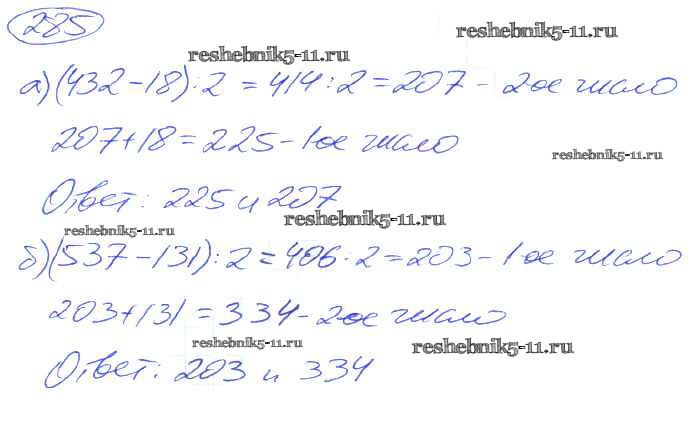 285
reshebnik5-11.ru
reshebnik5-11.ru
а) (432-18):2 = 414:2 = 207 - 2ое число
207+18 = 225 - 1ое число
reshebnik5-11.ru
Ответ: 225 и 207
reshebnik5-11.ru
reshebnik5-11.ru
б) (537-131):2 = 406·2 = 203 - 1ое число
203+131 = 334 - 2ое число
reshebnik5-11.ru
reshebnik5-11.ru
Ответ: 203 и 334